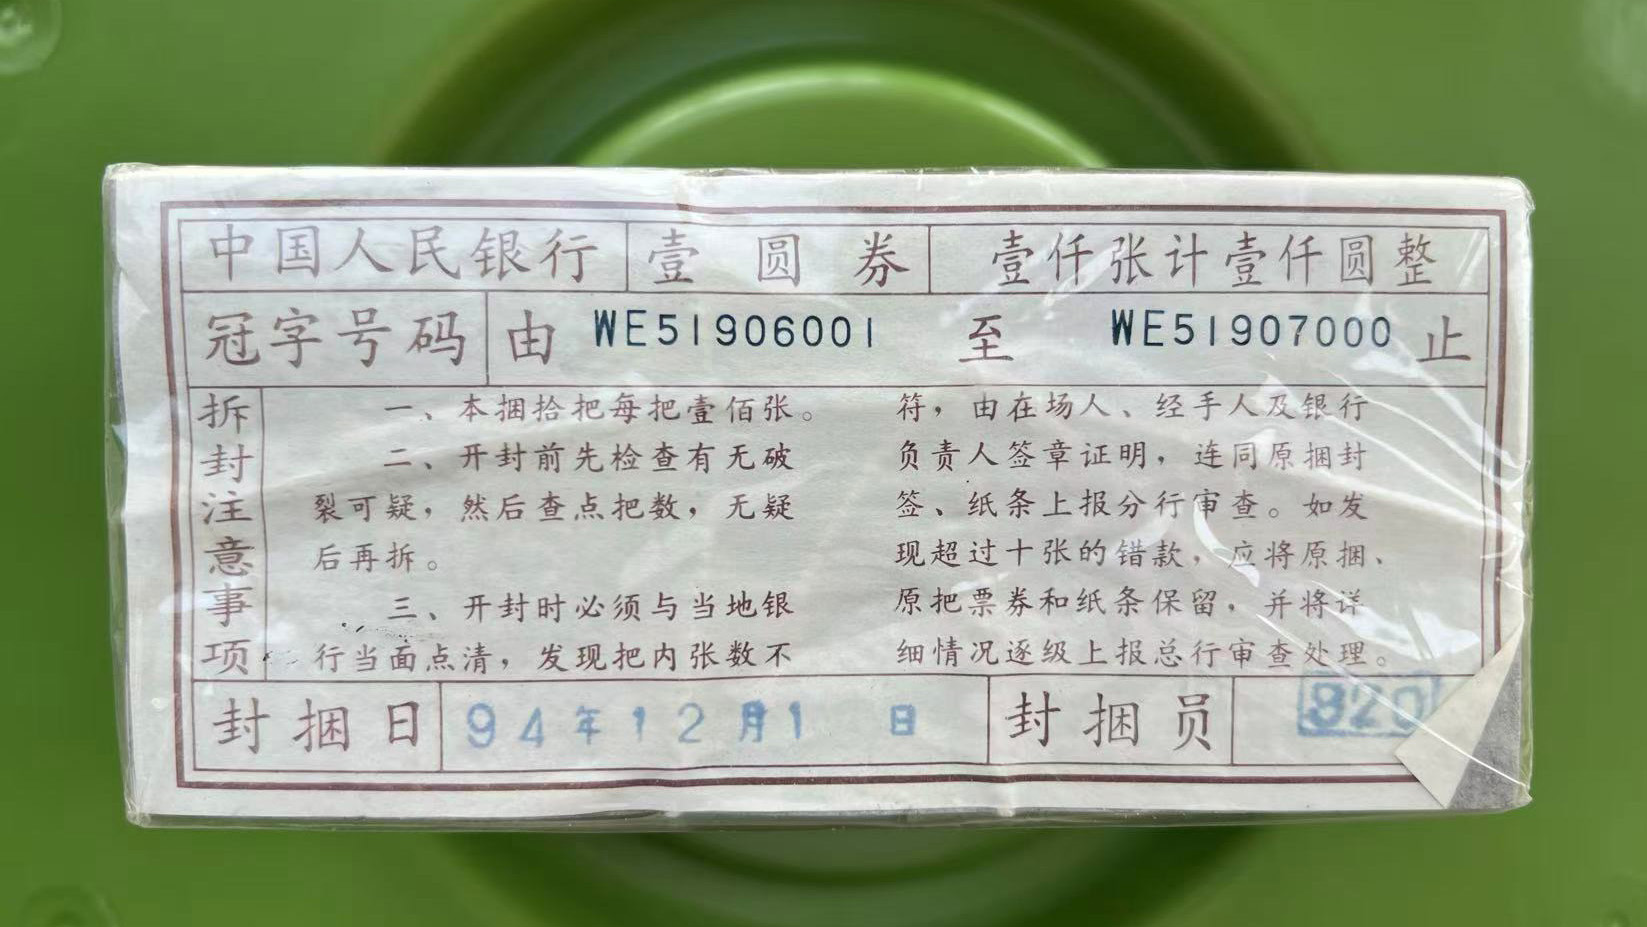 中国人民银行 壹圆券 壹仟张计壹仟圆整
冠字号码 由 WE51906001 至 WE51907000 止
拆封注意事项
一、本捆拾把每把壹佰张。
二、开封前先检查有无破
裂可疑，然后查点把数，无疑
后再拆。
三、开封时必须与当地银
行当面点清，发现把内张数不
符，由在场人、经手人及银行
负责人签章证明，连同原捆封
签、纸条上报分行审查。如发
现超过十张的错款，应将原捆、
原把票券和纸条保留，并将详
细情况逐级上报总行审查处理。
封捆日 94年12月1日 封捆员 820